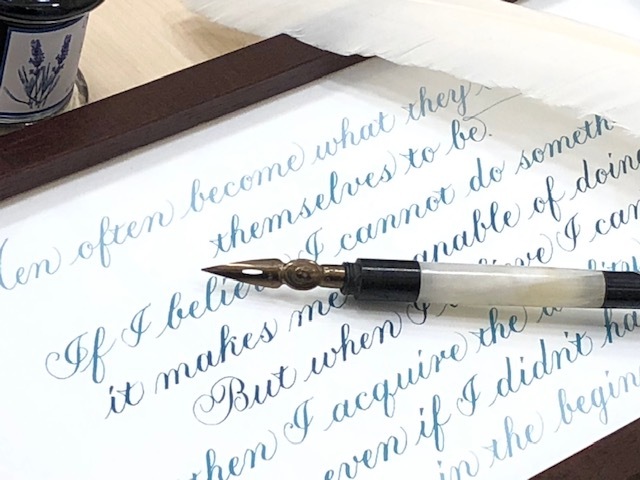 Men often become what they
themselves to be.
If I believe I cannot do someth
it makes me incapable of doing
But when I believe I can
then I acquire the
even if I didn't ha
in the begin